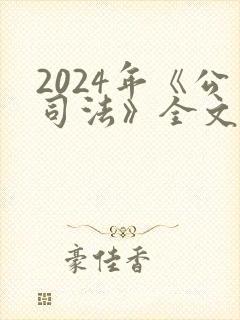 2024年《公
司法》全文
豪佳香